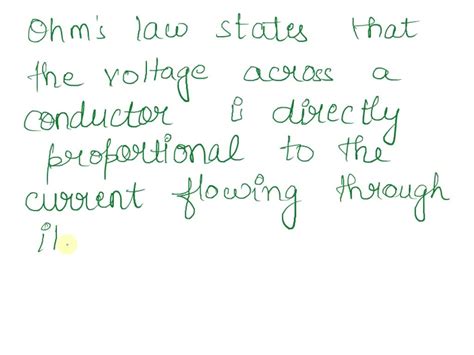 Ohm's law states that
the voltage across a
conductor is directly
proportional to the
current flowing through
it.